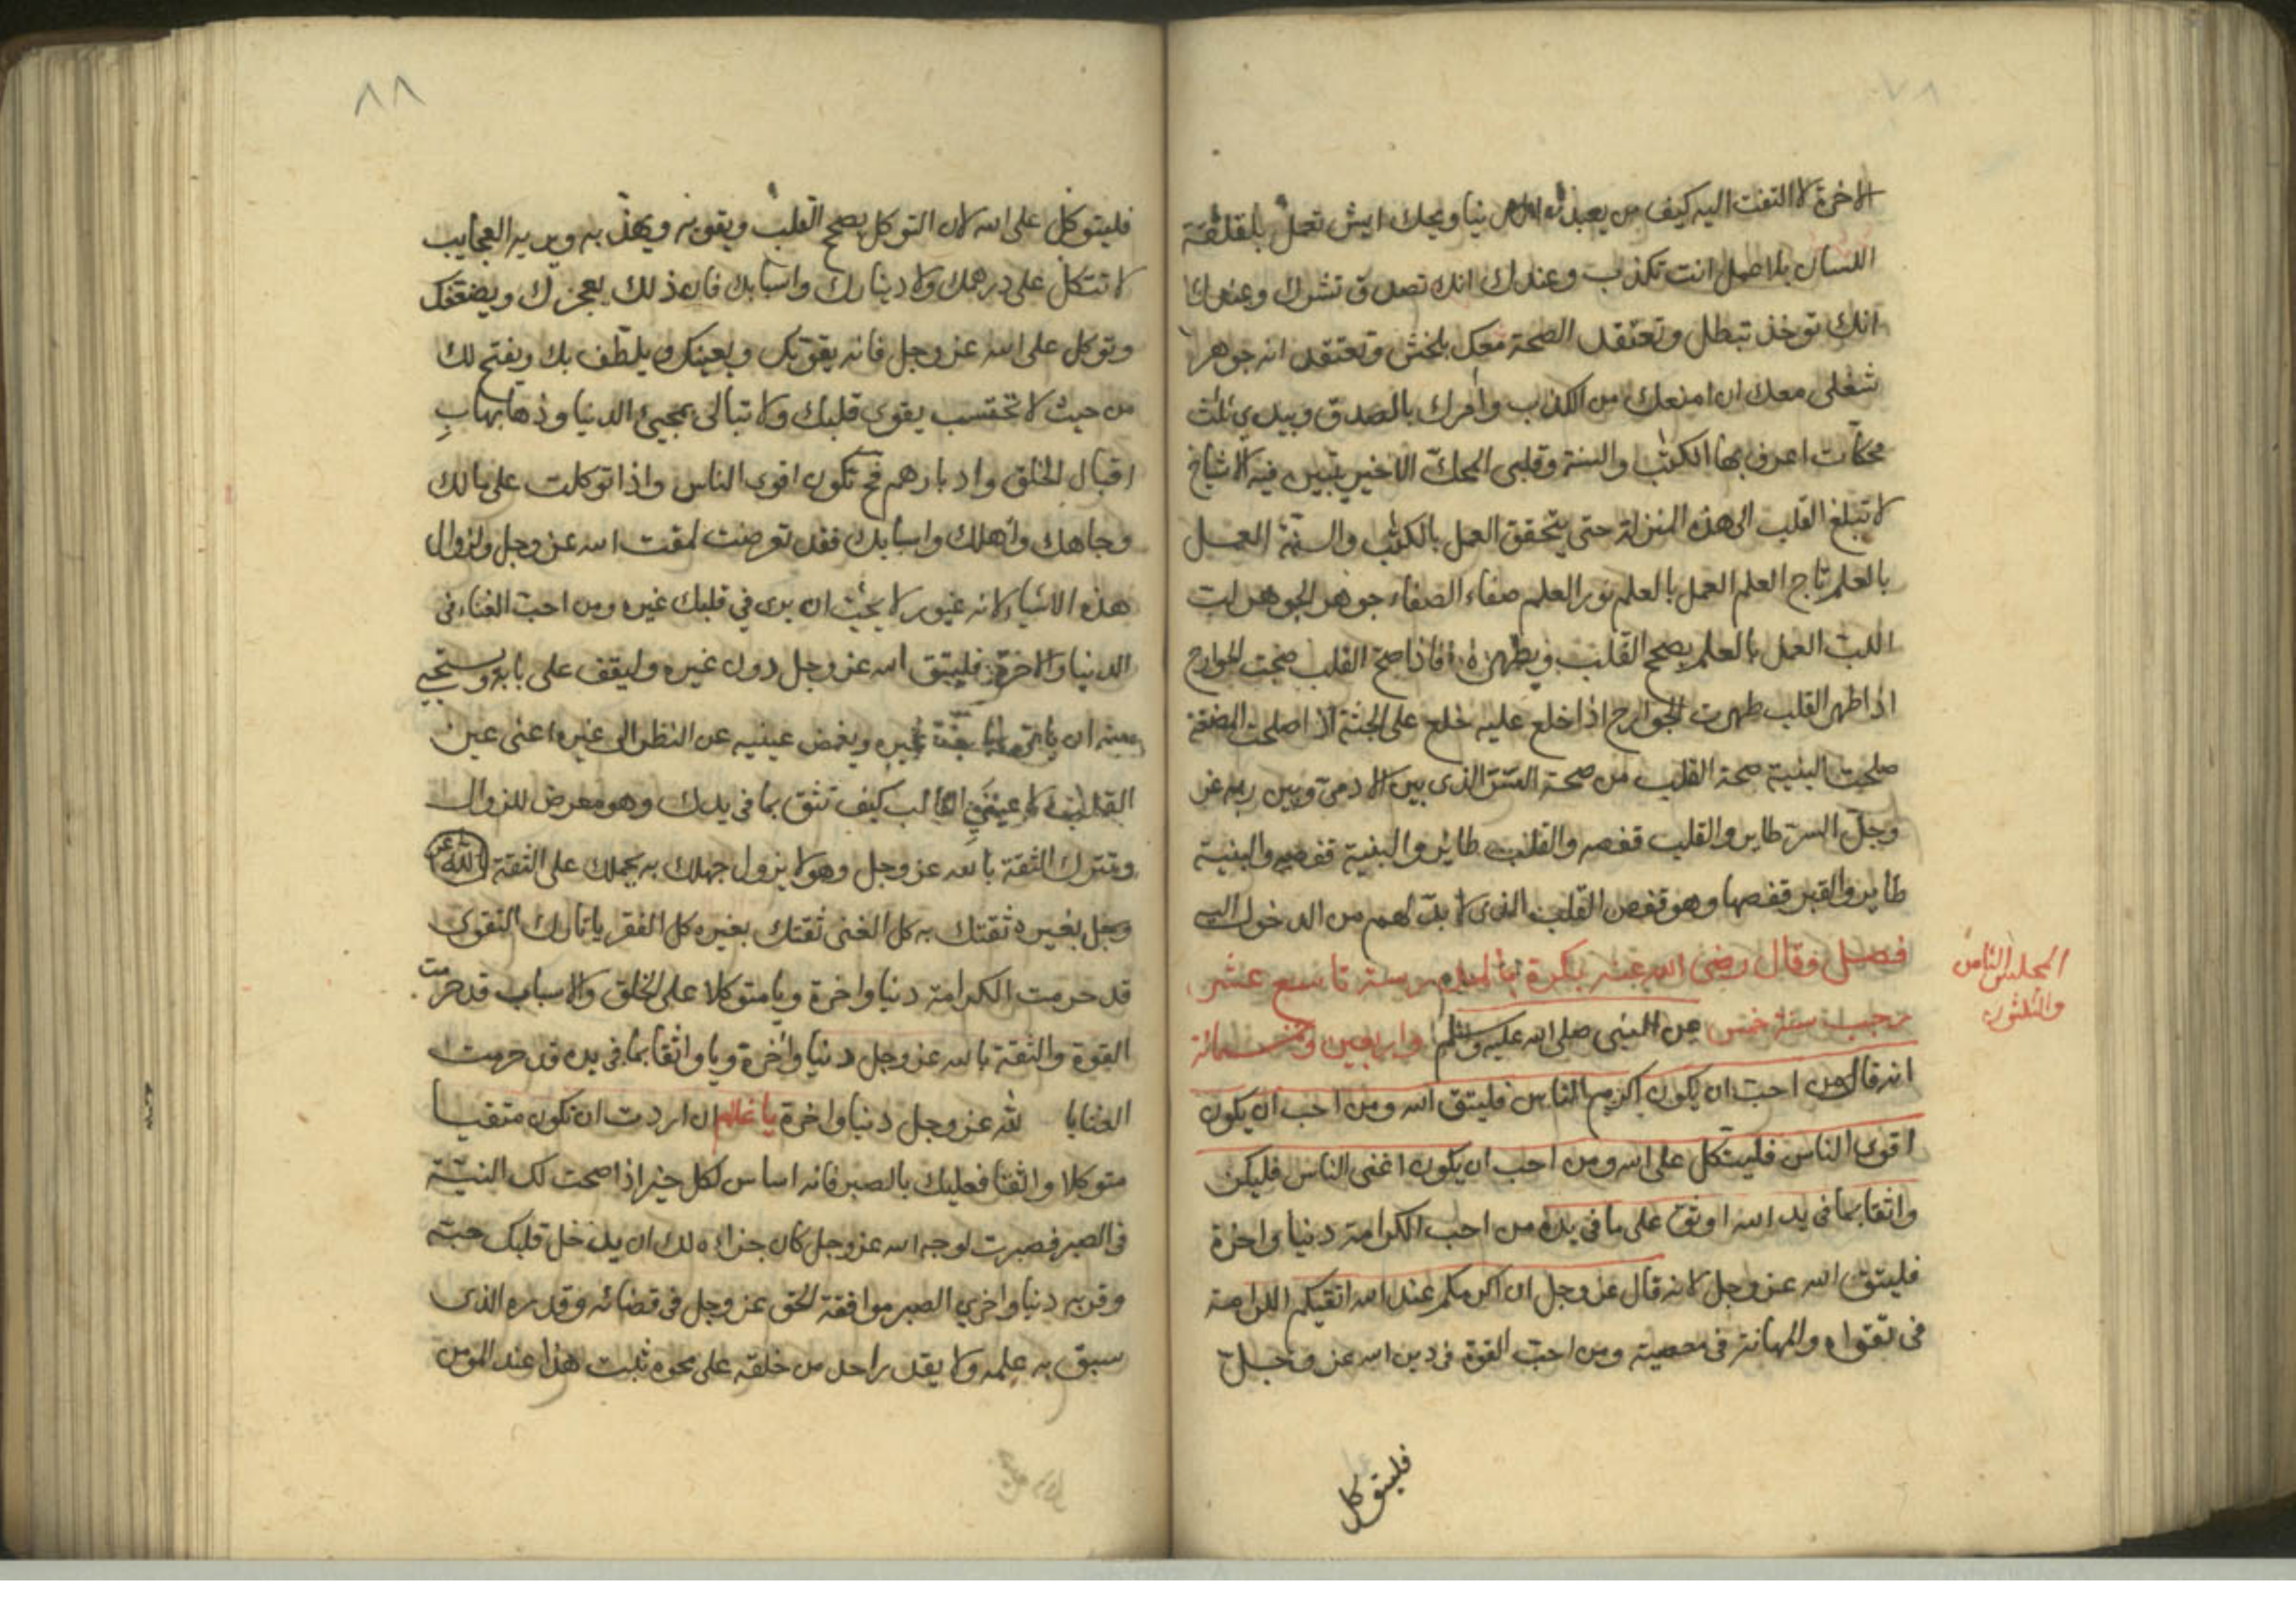 الاخرة لا التفت اليه كيف من يعبد الدنيا ويحك ايش تعمل بلقلقة
اللسان بلا عمل انت تكذب وعندك انك تصدق تشرك وعندك
انك توخذ تبطل وتعتقد الصحة معك بلخش وتعتقد انه جوهر
شغلى معك ان امنعك من الكذب وامرك بالصدق وبيدى ثلث
محكات اعرف بها الكتب والسنة وقلبى المحك الاخير يتبين فيه الاشباح
لا تبلغ القلب الى هذه المنزلة حتى يتحقق العمل بالكتب والسنة العمل
بالعلم تاج العلم العمل بالعلم نور العلم صفاء الصفاء جوهر الجوهر لب
اللب العمل بالعلم يصحح القلب ويطهره فاذا صح القلب صحت الجوارح
اذا طهر القلب طهرت الجوارح اذا خلع عليه خلع على الجثة اذا صلحت المضغة
صلحت البنية صحة القلب من صحة السر الذى بين الادمى وبين ربه عز
وجل السر طاير والقلب قفصه والقلب طاير والبنية قفصه والبنية
طاير والقبر قفصها وهو قفص القلب الذى لا بد لهم من الدخول اليه
فصل وقال رضى الله عنه بكرة بالمدرسة تاسع عشر
رجب سنة خمس واربعين وخمسمائة عن النبى صلى الله عليه وسلم
المجلس الثامن
والثلثون
انه قال من احب ان يكون اكرم الناس فليتق الله ومن احب ان يكون
اقوى الناس فليتكل على الله ومن احب ان يكون اغنى الناس فليكن
واثقا بما فى يد الله اوثق على ما فى يده من احب الكرامة دنيا واخرة
فليتق الله عز وجل لانه قال عز وجل ان اكرمكم عند الله اتقيكم الكرامة
فى تقواه والمهانة فى معصيته ومن احب القوة فى دين الله عز وجل
فليتوكل
٨٨
فليتوكل على الله لان التوكل يصحح القلب ويقويه ويهذبه ويريه العجايب
لا تتكل على درهمك ولا دينارك واسبابك فان ذلك يعجزك ويضعفك
وتوكل على الله عز وجل فانه يقويك ويعينك ويلطف بك ويفتح لك
من حيث لا تحتسب يقوى قلبك ولا تبالى بمجيئ الدنيا وذهابها ب
اقبال الخلق وادبارهم فح تكون اقوى الناس واذا توكلت على مالك
وجاهك واهلك واسبابك فقد تعرضت لمقت الله عز وجل ولزوال
هذه الاشياء لانه غيور لا يحب ان يرى فى قلبك غيره ومن احب الغناء فى
الدنيا والاخرة فليتق الله عز وجل دون غيره وليقف على بابه ويستحيى
منه ان ياتى غيره ويغمض عينيه عن النظر الى غيره اعنى عين
القلب لا عينى القالب كيف تثق بما فى يدك وهو معرض للزوال
وتترك الثقة بالله عز وجل وهو لا يزول جهلك به يحملك على الثقة الله عز
وجل بغيره ثقتك به كل الغنى ثقتك بغيره كل الفقر يا تارك التقوى
قد حرمت الكرامة دنيا واخرة ويا متوكلا على الخلق والاسباب قد حرمت
القوة والثقة بالله عز وجل دنيا واخرة ويا واثقا بما فى يده قد حرمت
الغنايا لله عز وجل دنيا واخرة يا غلام ان اردت ان تكون متقيا
متوكلا واثقا فعليك بالصبر فانه اساس لكل خير اذا صحت لك النية
فى الصبر فصبرت لوجه الله عز وجل كان جزاءه لك ان يدخل قلبك حبه
وقربه دنيا واخرى الصبر موافقة الحق عز وجل فى قضائه وقدره الذى
سبق به علمه ولا يقدر احد من خلقه على محوه ثبت هذا عند المومن